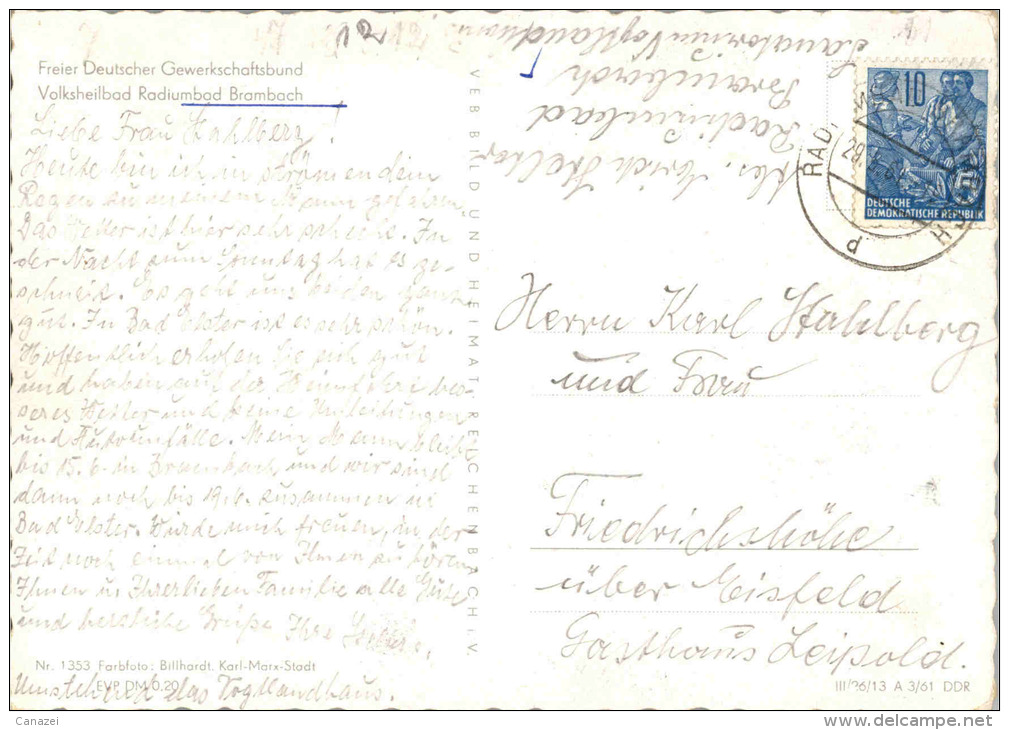 12
Freier Deutscher Gewerkschaftsbund
Volksheilbad Radiumbad Brambach
Liebe Frau Stahlberg!
Heute bin ich in strömendem
Regen zu meinem Mann gefahren.
Das Wetter ist hier sehr schlecht. In
der Nacht zum Sonntag hat es ge-
schneit. Es geht uns beiden ganz
gut. In Bad Elster ist es sehr schön.
Hoffentlich erholen Sie sich gut
und haben auf der Heimfahrt bes-
seres Wetter und keine Umleitungen
und Autounfälle. Mein Mann bleibt
bis 15.6. in Brambach und wir sind
dann noch bis 19.6. zusammen in
Bad Elster. Würde mich freuen, in der
Zeit noch einmal von Ihnen zu hören
Ihnen u. Ihrer lieben Familie alles Gute
und herzliche Grüße Ihre
Nr. 1353 Farbfoto: Billhardt, Karl-Marx-Stadt
EVP DM 0,20
Umstehend das Vogtlandhaus.
VEB BILD UND HEIMAT REICHENBACH I. V.
Abs. Erich
Radiumbad
Brambach
Sanatorium Vogtlandhaus
10
DEUTSCHE
DEMOKRATISCHE REPUBLIK
RAD.
Herrn Karl Stahlberg
und Frau
Friedrichshöhe
über Eisfeld
Gasthaus Leipold.
III/26/13 A 3/61 DDR
Canazei
delcampe.net